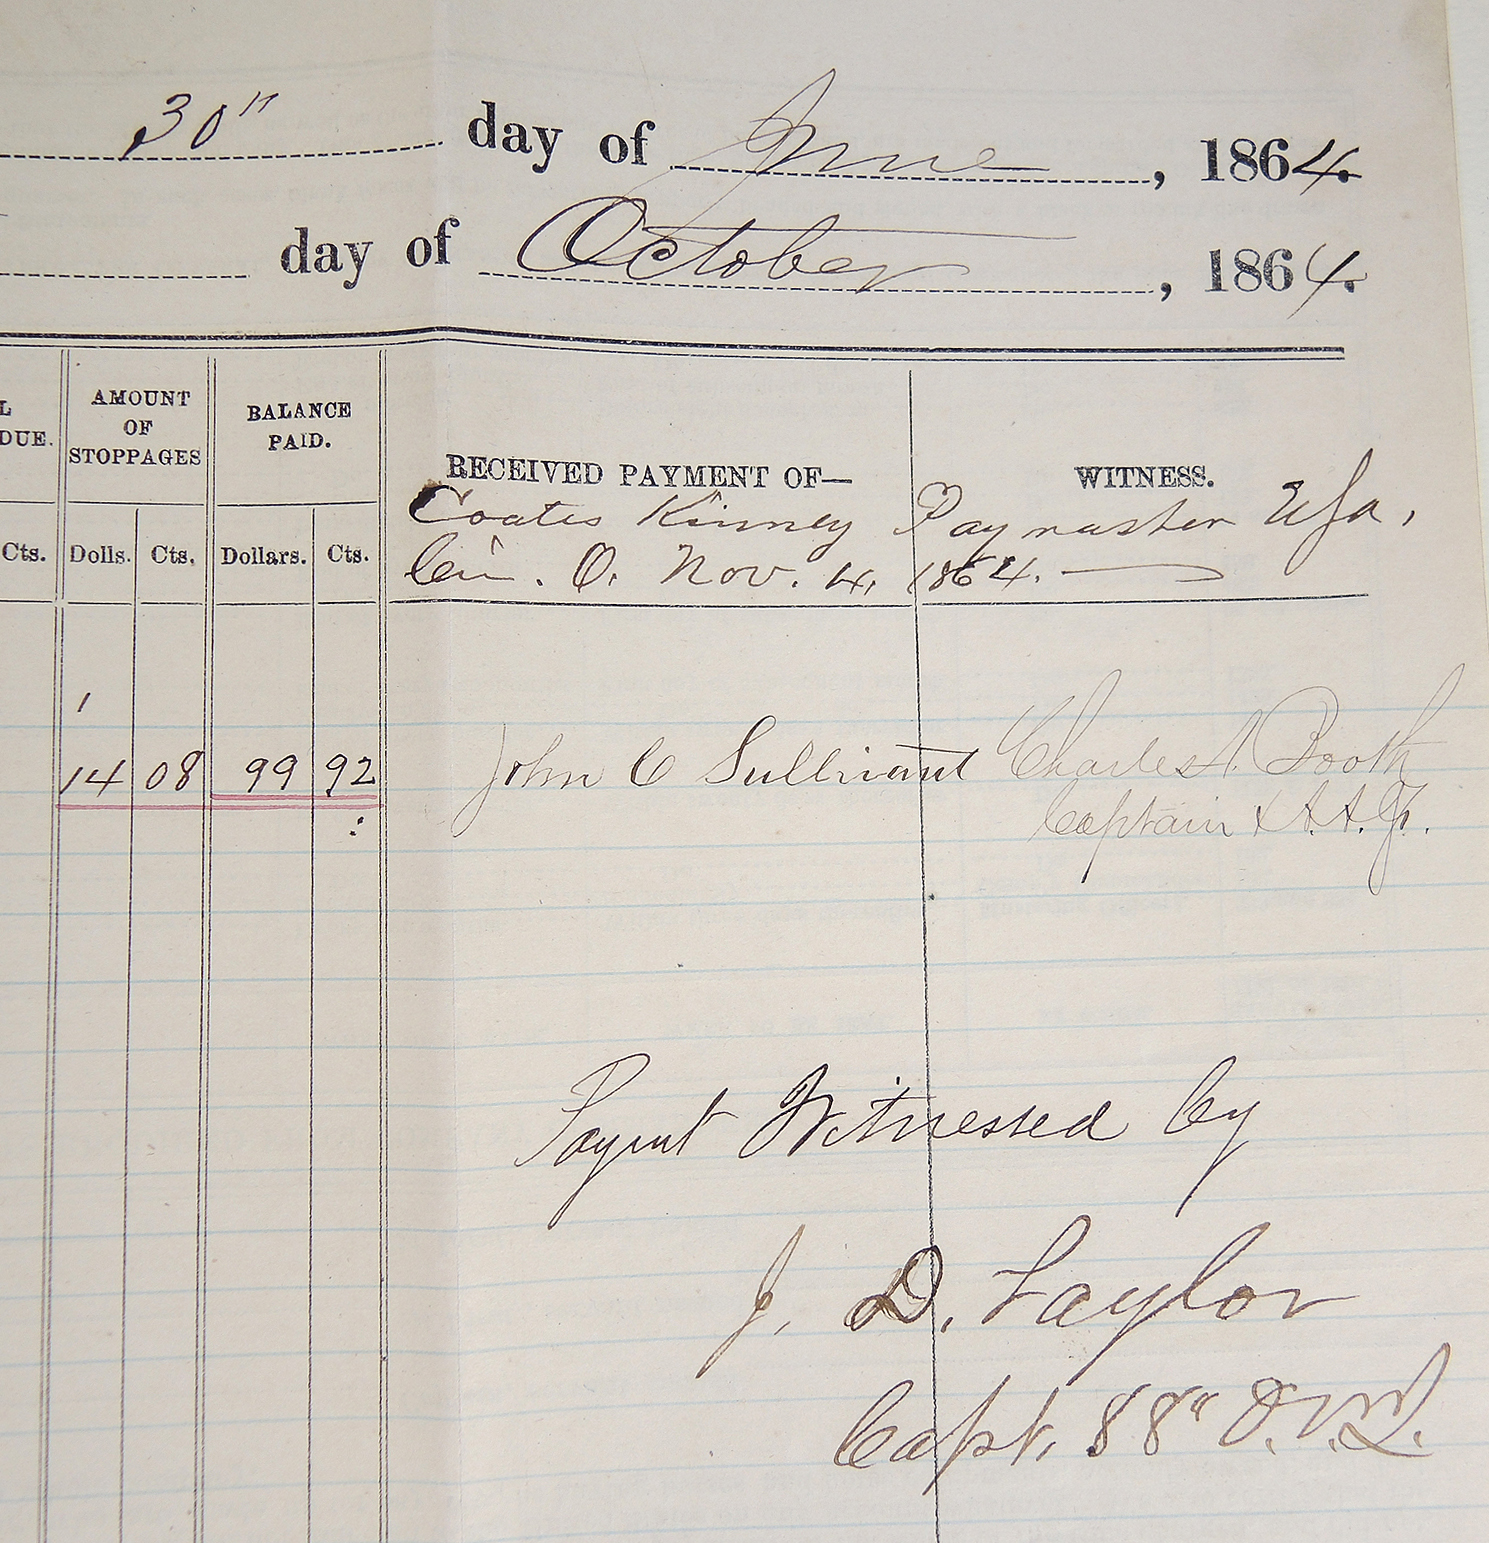 30" day of June, 1864.
day of October, 1864.
L
DUE.
AMOUNT
OF
STOPPAGES
BALANCE
PAID.
RECEIVED PAYMENT OF—
WITNESS.
Coates Kinney Paymaster USA,
Cin. O. Nov. 4, 1864.
Cts. Dolls. Cts. Dollars. Cts.
14 08 99 92 John C Sullivant Charles A. Booth
Captain & A.A.G.
Paymt Witnessed by
J. D. Taylor
Capt. 88" O.V.I.